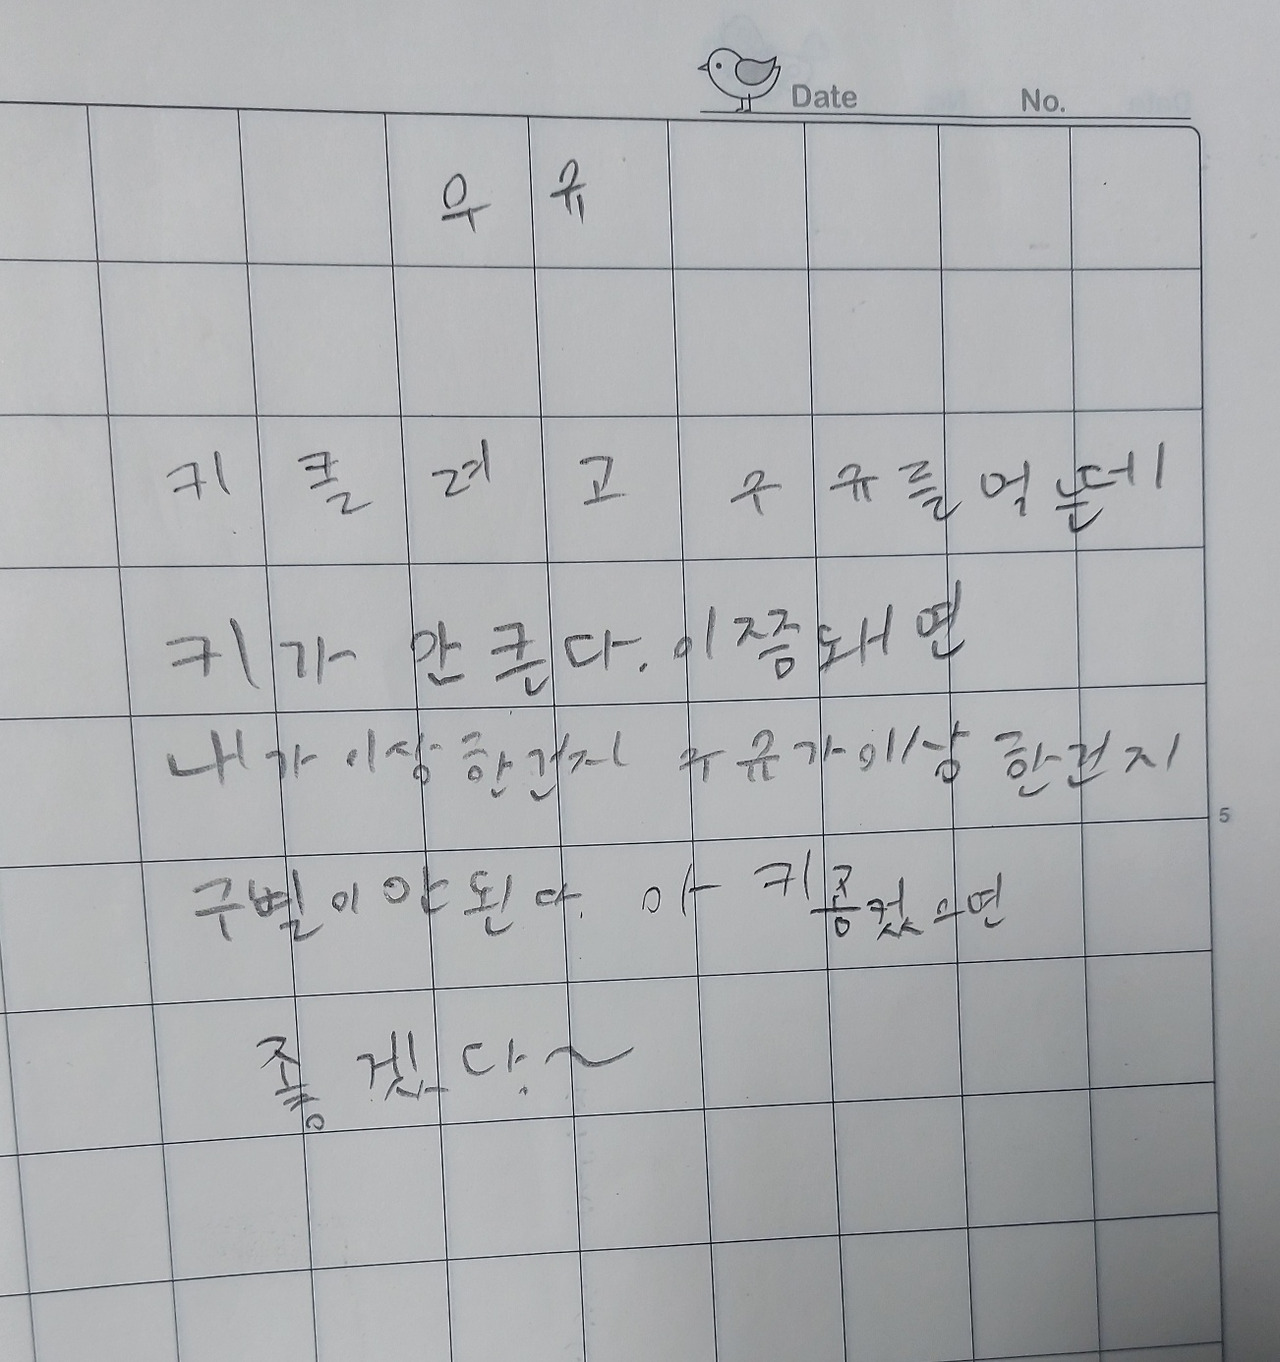 Date No.
우유
키 클려고 우유를 먹는데
키가 안 큰다. 이쯤돼면
내가 이상한건지 우유가 이상한건지
구별이 안 된다. 아 키좀컸으면
좋겠다.~
5